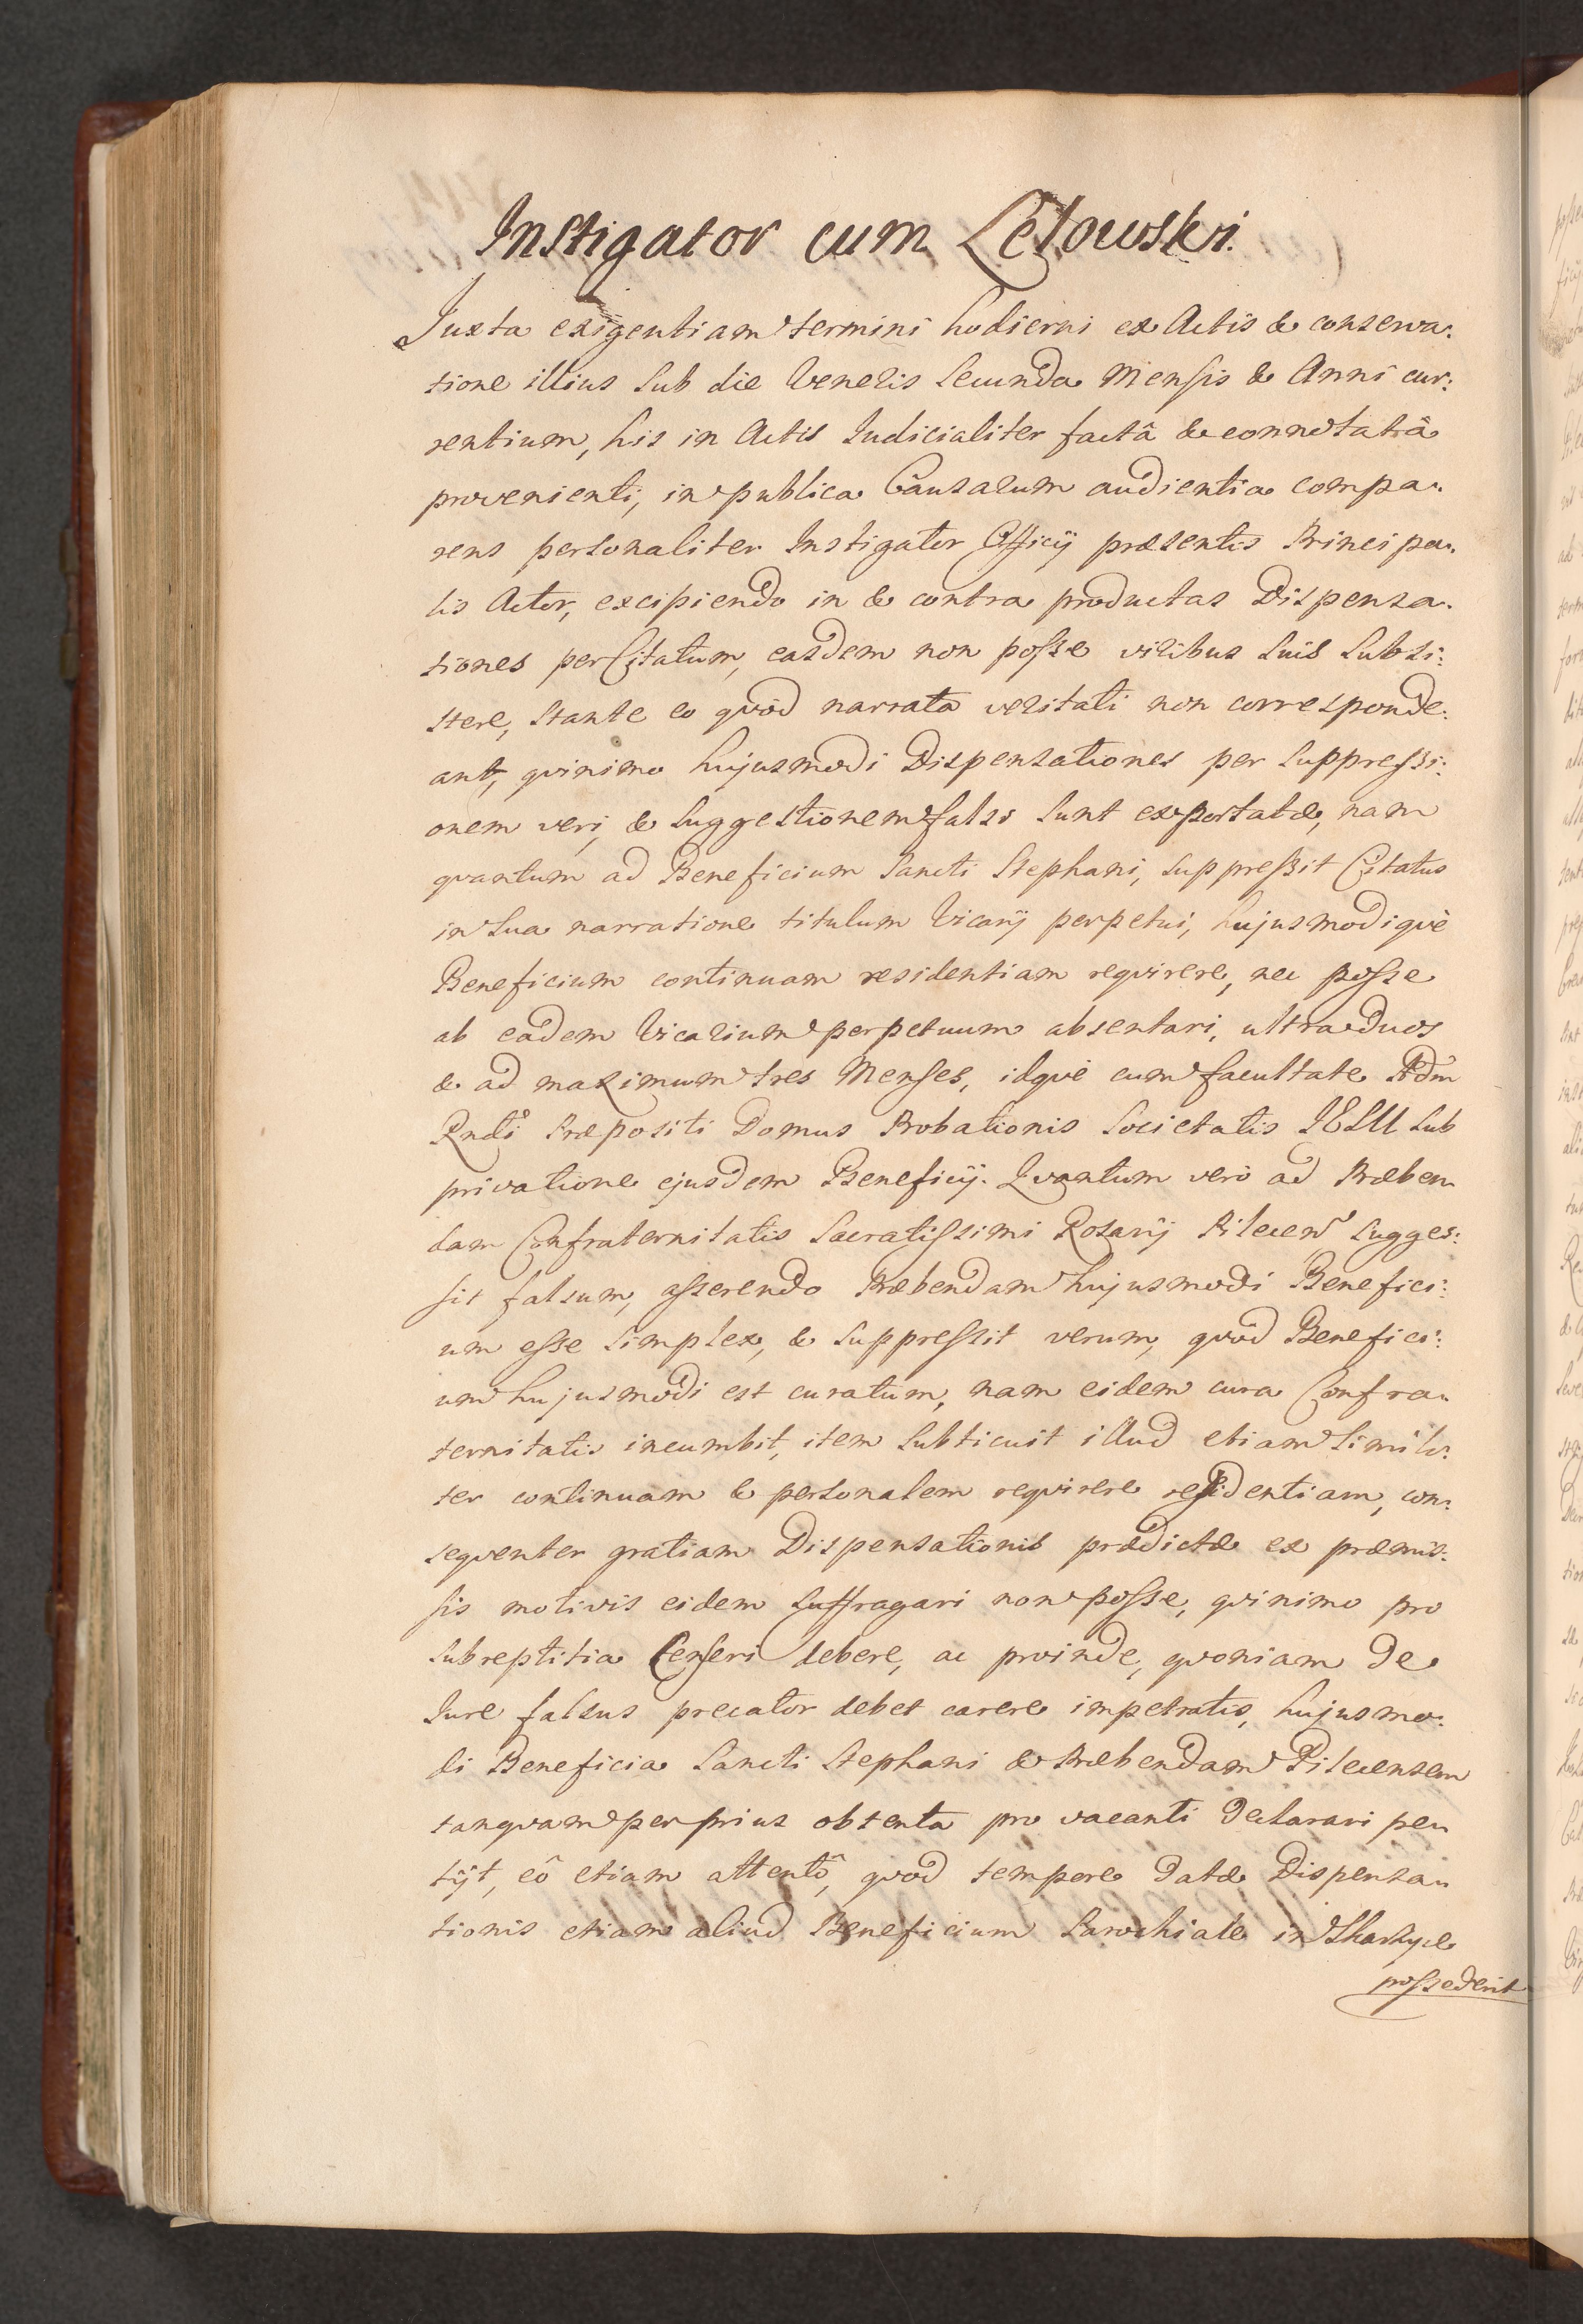 Instigator cum Lętowski.
Iuxta exigentiam termini hodierni ex Actis & conserva:
tione illius sub die Veneris secunda Mensis & Anni cur:
rentium, his in Actis Iudicialiter factâ & connotatâ
provenienti, in publica Causarum audientia compa:
rens personaliter Instigator Officij præsentis Principa:
lis Actor, excipiendo in & contra productas Dispensa:
tiones per Citatum, easdem non posse viribus suis subsi:
stere, stante eo quòd narrata veritati non corresponde:
ant, quinimo hujusmodi Dispensationes per suppressi:
onem veri, & suggestionem falsi sunt exportatæ, nam
quantum ad Beneficium Sancti Stephani, suppressit Citatus
in sua narratione titulum Vicarij perpetui, hujusmodiquè
Beneficium continuam residentiam requirere, nec posse
ab eadem Vicarium perpetuum absentari, ultra duos
& ad maximum tres Menses, idquè cum facultate Adm
Rndi Præpositi Domus Probationis Societatis IESU sub
privatione ejusdem Beneficij. Quantum verò ad Præben
dam Confraternitatis Sacratissimi Rosarij Pilecen sugges:
sit falsum, asserendo Præbendam hujusmodi Benefici:
um esse simplex, & suppressit verum, quòd Benefici:
um hujusmodi est curatum, nam eidem cura Confra:
ternitatis incumbit, item subticuit illud etiam simili:
ter continuam & personalem requirere residentiam, con:
sequenter gratiam Dispensationis prædictæ ex præmis:
sis motivis eidem suffragari non posse, quinimo pro
subreptitia Censeri debere, ac proinde, quoniam de
Iure falsus precator debet carere impetratis, hujusmo:
di Beneficia Sancti Stephani & Præbendam Pilecensem
tanquam per prius obtenta pro vacanti declarari pe:
tijt, eô etiam attentô, quod tempore datæ Dispensa:
tionis etiam aliud Beneficium Parochiale in
possederit